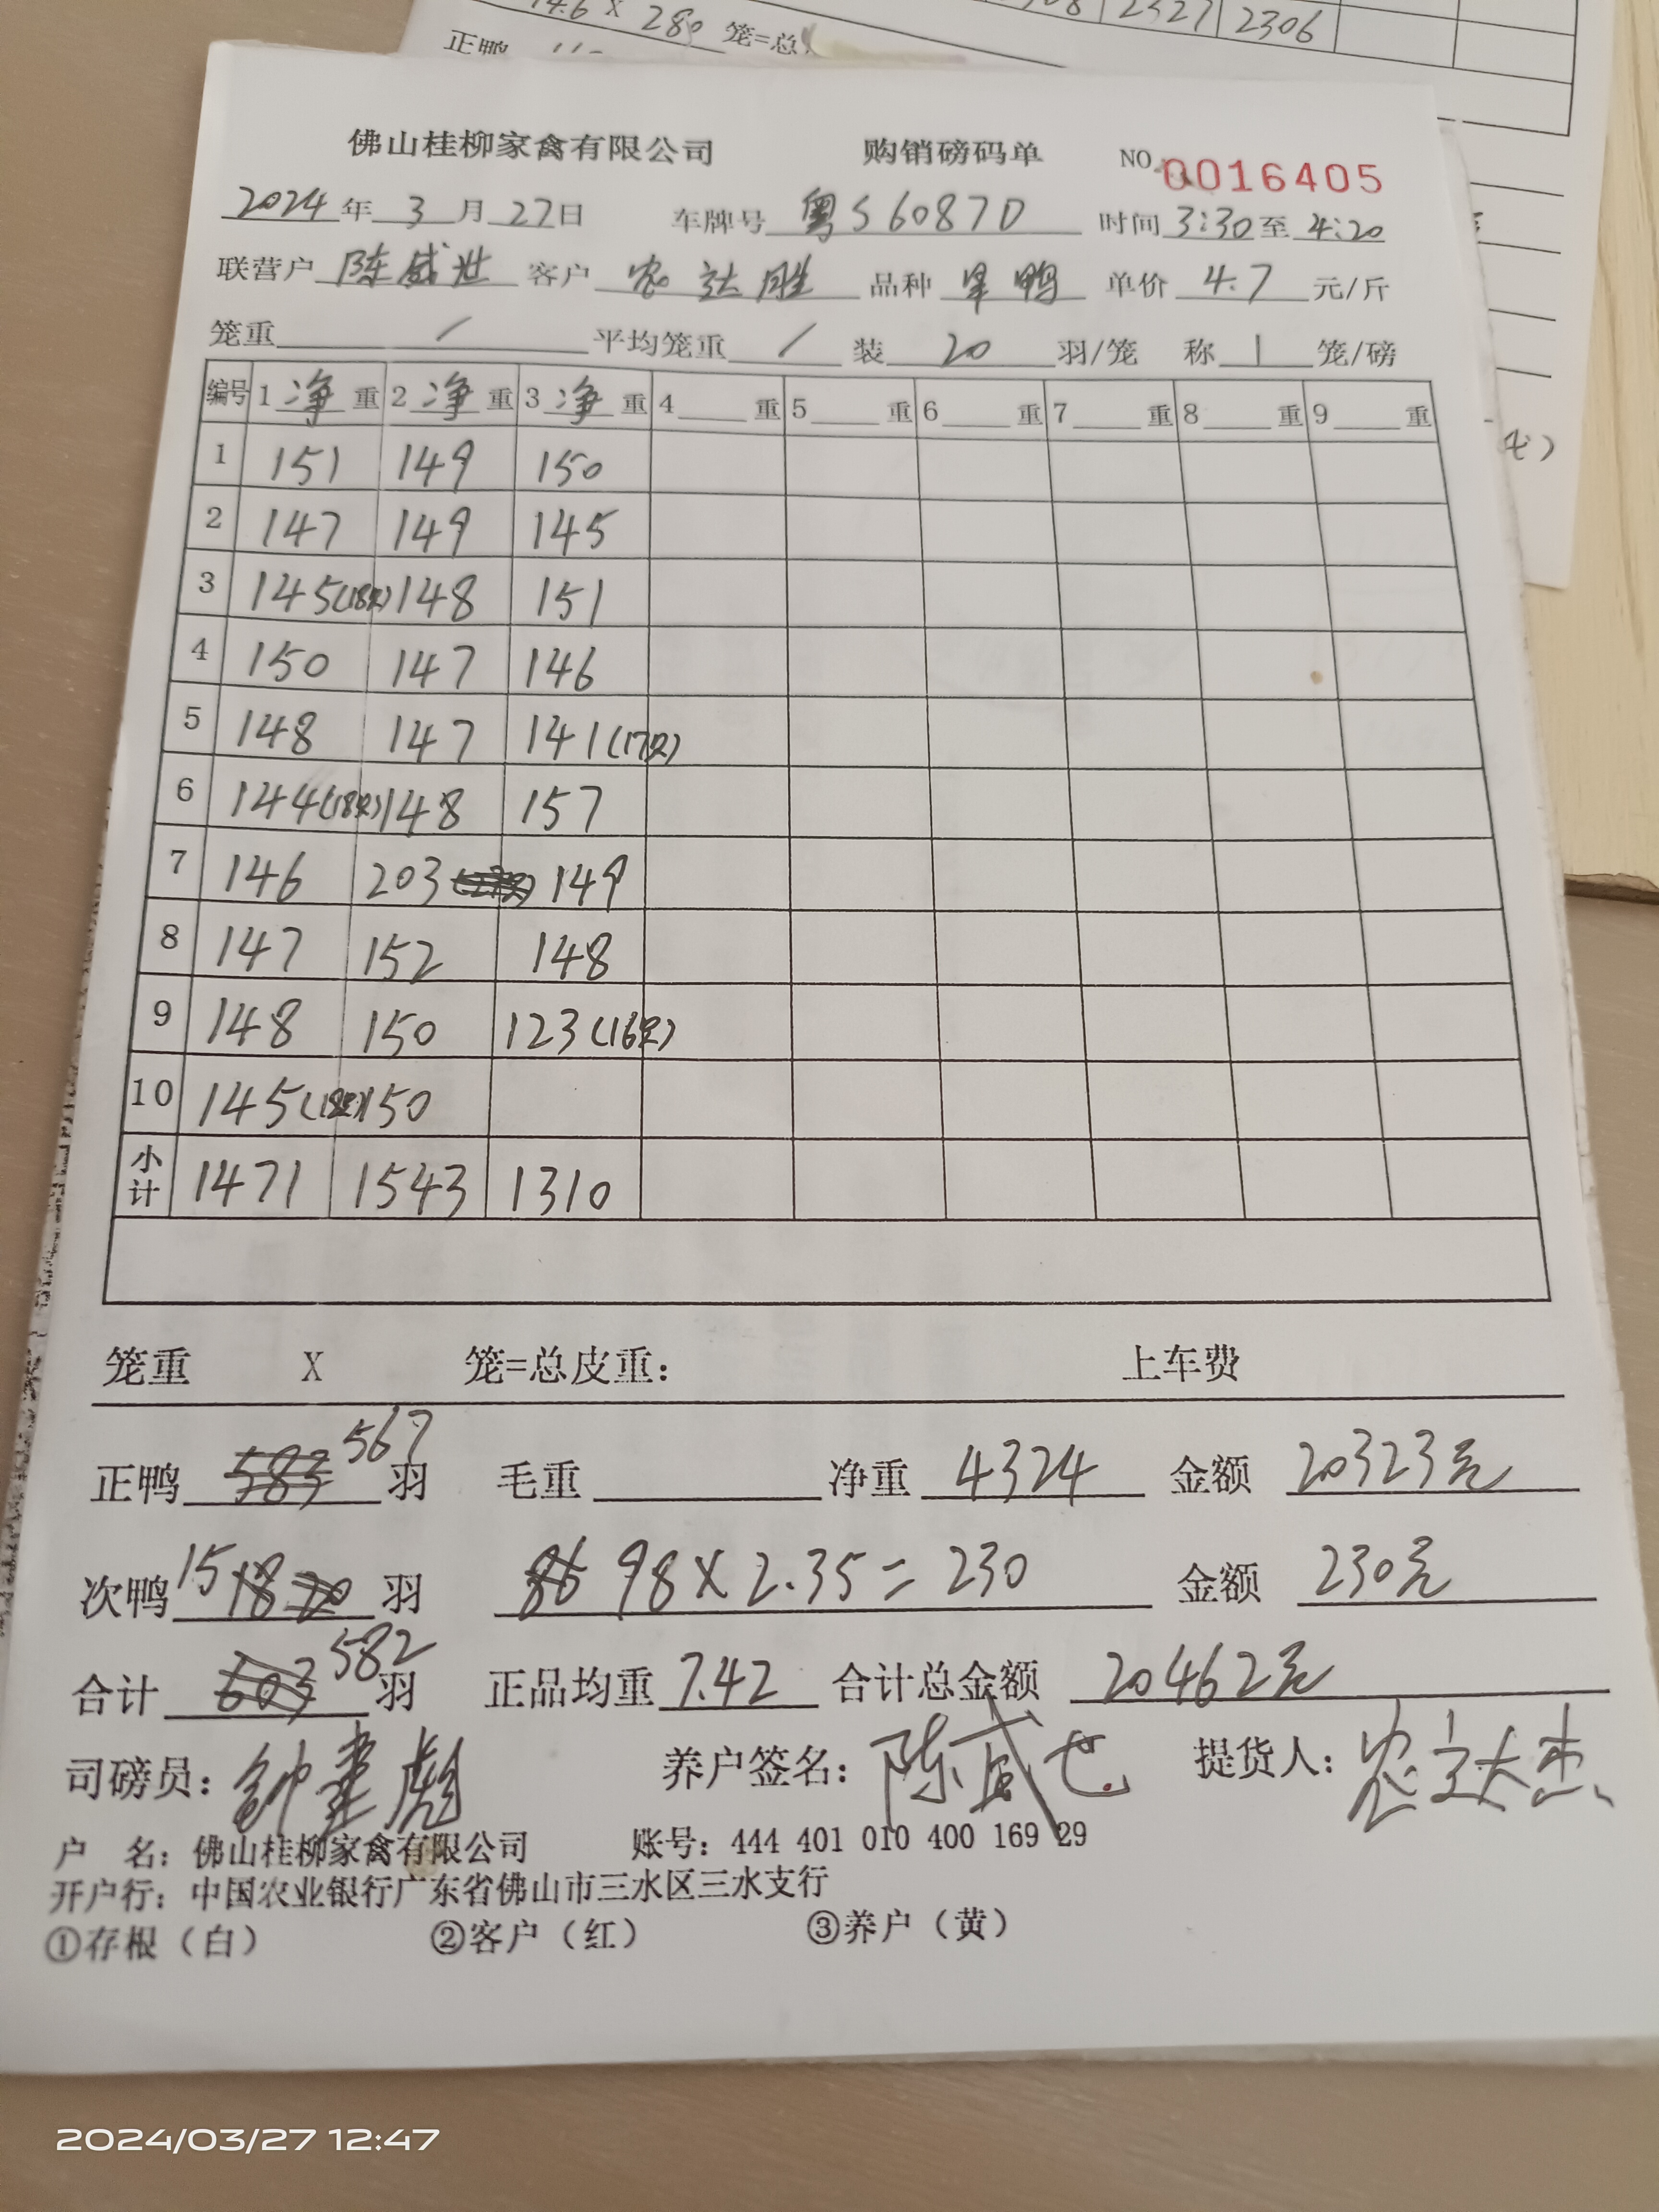 2327 2306
14.6 X 280 笼=总
正鸭
佛山桂柳家禽有限公司 购销磅码单 NO 0016405
2024年3月27日 车牌号 粤S6087D 时间 3:30至4:20
联营户 陈威世 客户 农达胜 品种 旱鸭 单价 4.7 元/斤
笼重 / 平均笼重 / 装 20 羽/笼 称 1 笼/磅
编号 1 净重 2 净重 3 净重 4 重 5 重 6 重 7 重 8 重 9 重
1 151 149 150
2 147 149 145
3 145(18只) 148 151
4 150 147 146
5 148 147 141(17只)
6 144(18只) 148 157
7 146 203 149
8 147 152 148
9 148 150 123(16只)
10 145(18只) 150
小计 1471 1543 1310
笼重 X 笼=总皮重： 上车费
正鸭 583 567 羽 毛重 净重 4324 金额 20323元
次鸭 15 18 20 羽 86 98 X 2.35 = 230 金额 230元
合计 603 582 羽 正品均重 7.42 合计总金额 20462元
司磅员：钟 彪 养户签名：陈威世 提货人：
户 名：佛山桂柳家禽有限公司 账号：444 401 010 400 169 29
开户行：中国农业银行广东省佛山市三水区三水支行
①存根（白） ②客户（红） ③养户（黄）
2024/03/27 12:47